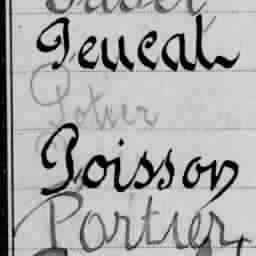 Peucat
Potier
Poisson
Portier